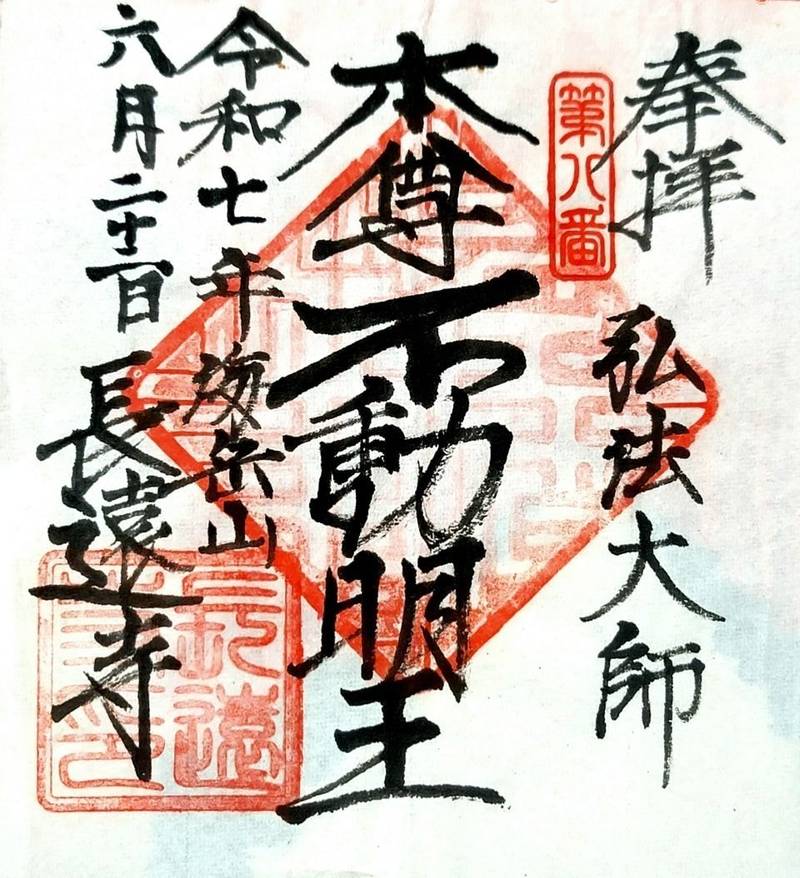 奉拝
弘法大師
第八番
本尊不動明王
令和七年
海岳山
六月二十一日
長遠寺
長遠